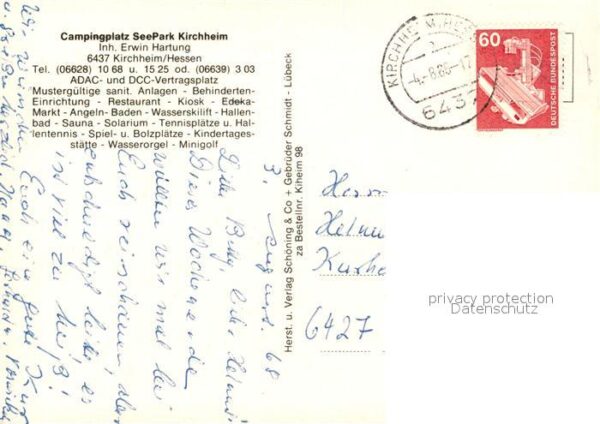 Campingplatz SeePark Kirchheim
Inh. Erwin Hartung
6437 Kirchheim/Hessen
Tel. (06628) 10 68 u. 15 25 od. (06639) 3 03
ADAC- und DCC-Vertragsplatz
Mustergültige sanit. Anlagen - Behinderten-
Einrichtung - Restaurant - Kiosk - Edeka-
Markt - Angeln- Baden - Wasserskilift - Hallen-
bad - Sauna - Solarium - Tennisplätze u. Hal-
lentennis - Spiel- u. Bolzplätze - Kindertages-
stätte - Wasserorgel - Minigolf
Herst. u. Verlag Schöning & Co + Gebrüder Schmidt - Lübeck
za Bestellnr. Kiheim 98
60
DEUTSCHE BUNDESPOST
6437
3. August
Liebe
Diese Wochenende
wollten wir mal bei
Euch
leider, es
ist viel zu heiß!
Euch eine gute Kur
Herrn
6427
privacy protection
Datenschutz